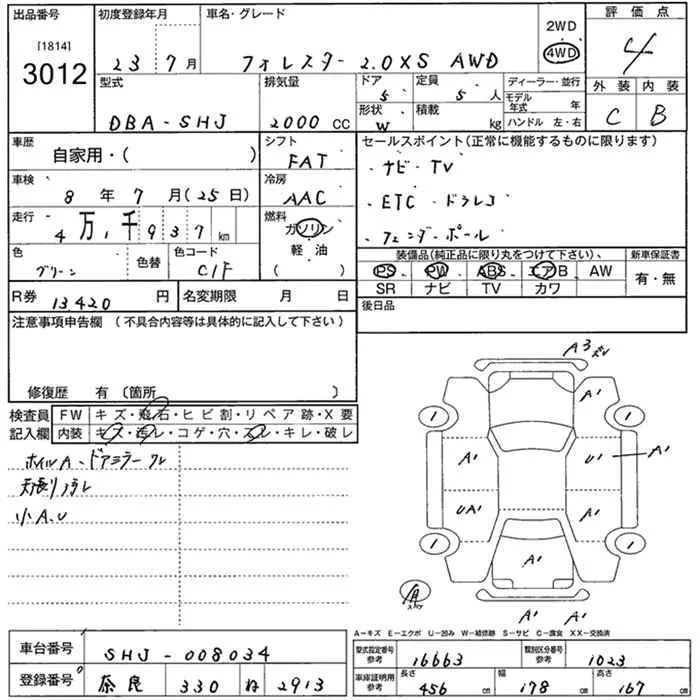 出品番号 初度登録年月 車名・グレード 2WD 評価点
[1814]
3012 23 7月 フォレスター 2.0XS AWD 4WD 4
型式 排気量 ドア 5 定員 5人 ディーラー・並行 外装 内装
形状 W 積載 kg モデル年式 年 C B
DBA-SHJ 2000 CC ハンドル 左・右
車歴 自家用・( ) シフト FAT セールスポイント(正常に機能するものに限ります)
・ナビ・TV
車検 8年 7月(25日) 冷房 AAC ・ETC・ドラレコ
走行 4万,千937km 燃料 ガソリン 軽油 ( ) ・フェンダーポール
色 グリーン 色替 色コード C1F 装備品(純正品に限り丸をつけて下さい)、 新車保証書
PS PW ABS エアB AW 有・無
SR ナビ TV カワ
R券 13420円 名変期限 月 日 後日品
注意事項申告欄 (不具合内容等は具体的に記入して下さい)
修復歴 有 〔箇所 〕
検査員 FW キズ・飛石・ヒビ割・リペア跡・X要
記入欄 内装 キズ・汚レ・コゲ・穴・スレ・キレ・破レ
ホイルA・ドアミラー
天張り
小A.U
A3
A'
1 1
A' U' A'
UA' A'
1 1
A'
A' A'
A-キズ E-エクボ U-凹み W-補修跡 S-サビ C-腐食 XX-交換済
車台番号 SHJ-008034 型式指定番号 参考 16663 類別区分番号 参考 1023
登録番号 奈良 330 ね 2913 車庫証明用 参考 長さ 456cm 幅 178cm 高さ 167cm